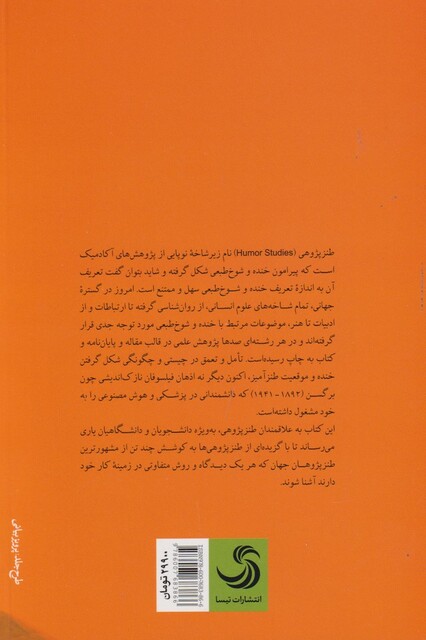 طنزپژوهی (Humor Studies) نام زیرشاخهٔ نوپایی از پژوهش‌های آکادمیک
است که پیرامون خنده و شوخ‌طبعی شکل گرفته و شاید بتوان گفت تعریف
آن به اندازهٔ تعریف خنده و شوخ‌طبعی سهل و ممتنع است. امروز در گسترهٔ
جهانی، تمام شاخه‌های علوم انسانی، از روان‌شناسی گرفته تا ارتباطات و از
ادبیات تا هنر، موضوعات مرتبط با خنده و شوخ‌طبعی مورد توجه جدی قرار
گرفته‌اند و در هر رشته‌ای صدها پژوهش علمی در قالب مقاله و پایان‌نامه و
کتاب به چاپ رسیده‌است. تأمل و تعمق در چیستی و چگونگی شکل گرفتن
خنده و موقعیت طنزآمیز، اکنون دیگر نه اذهان فیلسوفان نازک‌اندیشی چون
برگسن (۱۸۹۲-۱۹۴۱) که دانشمندانی در پزشکی و هوش مصنوعی را به
خود مشغول داشته‌است.
این کتاب به علاقمندان طنزپژوهی، به‌ویژه دانشجویان و دانشگاهیان یاری
می‌رساند تا با گزیده‌ای از طنزپژوهی‌ها به کوشش چند تن از مشهورترین
طنزپژوهان جهان که هر یک دیدگاه و روش متفاوتی در زمینهٔ کار خود
دارند آشنا شوند.
طرح جلد: پرویز بیانی
۲۹۹۰۰ تومان
انتشارات تیسا